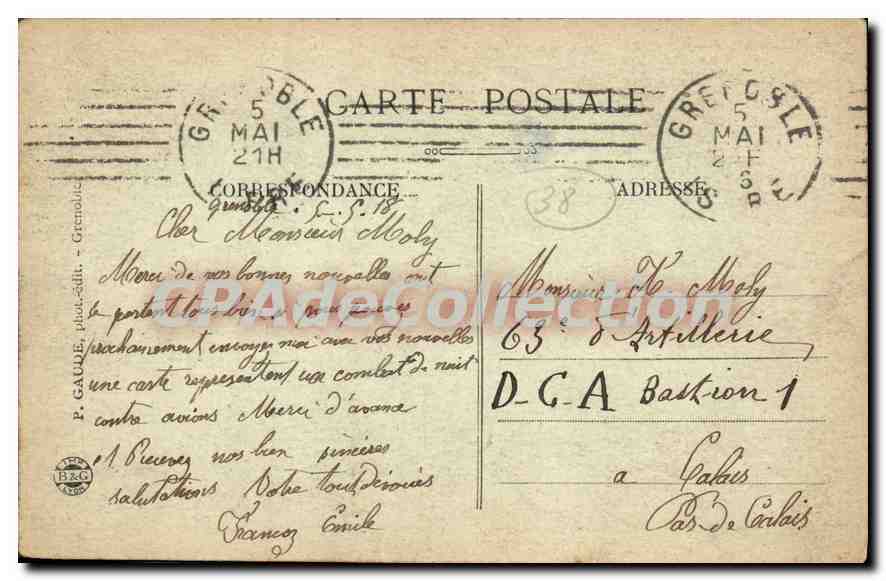 CARTE POSTALE
GRENOBLE
5
MAI
21H
GRENOBLE
5
MAI
CORRESPONDANCE
ADRESSE
38
Grenoble. 5-5.18
Cher Monsieur Moly
Merci de nos bonnes nouvelles ont
se portent tous bien si vous pouvez
prochainement envoyez moi avec vos nouvelles
une carte representent un combat de nuit
contre avions Merci d'avance
et Recevez nos bien sincères
salutations Votre tout dévoués
Francoz Emile
Monsieur K Moly
63e d'Artillerie
D-C-A Bastion 1
a Calais
Pas-de Calais
P. GAUDE, phot.-édit. - Grenoble
IMP.
B&G
LYON
CPAdeCollection